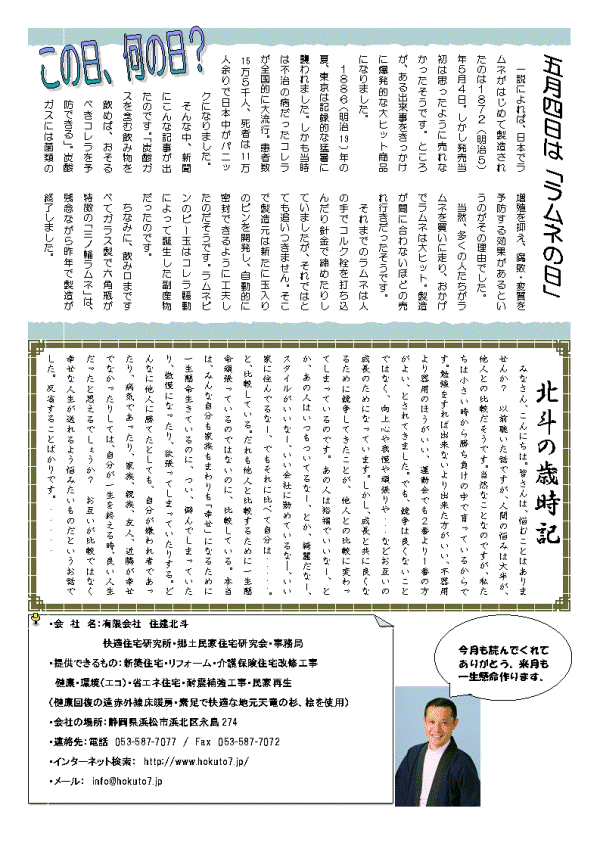 この日、何の日？
五月四日は「ラムネの日」
一説によれば、日本でラ
ムネがはじめて製造され
たのは1872（明治5）
年5月4日。しかし発売当
初は思ったように売れな
かったそうです。ところ
が、ある出来事をきっかけ
に爆発的な大ヒット商品
になりました。
1886（明治19）年の
夏、東京は記録的な猛暑に
襲われました。しかも当時
は不治の病だったコレラ
が全国的に大流行。患者数
15万5千人、死者は11万
人余りで日本中がパニッ
クになりました。
そんな中、新聞
にこんな記事が出
たのです。「炭酸ガ
スを含む飲み物を
飲めば、おそる
べきコレラを予
防できる」。炭酸
ガスには菌類の
増殖を抑え、腐敗・変質を
予防する効果があるとい
うのがその理由でした。
当然、多くの人たちがラ
ムネを買いに走り、おかげ
でラムネは大ヒット。製造
が間に合わないほどの売
れ行きだったそうです。
それまでのラムネは人
の手でコルク栓を打ち込
んだり針金で締めたりし
ていましたが、それではと
ても追いつきません。そこ
で製造元は新たに玉入り
のビンを開発し、自動的に
密封できるように工夫し
たのだそうです。ラムネビ
ンのビー玉はコレラ騒動
によって誕生した副産物
だったのです。
ちなみに、飲み口まです
べてガラス製で六角瓶が
特徴の「三ノ輪ラムネ」は、
残念ながら昨年で製造が
終了しました。
北斗の歳時記
みなさん、こんにちは。皆さんは、悩むことはありま
せんか？　以前聴いた話ですが、人間の悩みは大半が、
他人との比較だそうです。当然なことなのですが、私た
ちは小さい時から勝ち負けの中で育っているからで
す。勉強をすれば出来ないより出来た方がいい、不器用
より器用のほうがいい、運動会でも2番より1番の方
がよい、とされてきました。でも、競争は良くないこと
ではなく、向上心や我慢や頑張りや．．などお互いの
成長のためになっています。しかし、成長と共に良くな
るために競争してきたことが、他人との比較に変わっ
てしまっているのです。あの人は裕福でいいなー、と
か、あの人はいつもついてるなー、とか、綺麗だなー、
スタイルがいいなー、いい会社に勤めているなー、いい
家に住んでるなー、でもそれに比べて自分は．．．．。
と、比較している。だれも他人と比較するために一生懸
命頑張っているのではないのに、比較している。本当
は、みんな自分も家族もまわりも「幸せ」になるために
一生懸命生きているのに、つい、僻んでしまっていた
り、傲慢になったり、欲張ってしまっていたりする。ど
んなに他人に勝てたとしても、自分が嫌われ者であっ
たり、病気であったり、家族、親族、友人、近隣が幸せ
でなかったりしては、自分が一生を終える時、良い人生
だったと思えるでしょうか？　お互いが比較ではなく
幸せな人生が送れるよう悩みたいものだというお話で
した。反省することばかりです。．．．．．
・会　社　名：有限会社　住建北斗
快適住宅研究所・郷土民家住宅研究会・事務局
・提供できるもの：新築住宅・リフォーム・介護保険住宅改修工事
健康・環境（エコ）・省エネ住宅・耐震補強工事・民家再生
（健康回復の遠赤外線床暖房・素足で快適な地元天竜の杉、桧を使用）
・会社の場所：静岡県浜松市浜北区永島274
・連絡先：電話　053-587-7077　/　Fax　053-587-7072
・インターネット検索：　http://www.hokuto7.jp/
・メール：　info@hokuto7.jp
今月も読んでくれて
ありがとう。来月も
一生懸命作ります。